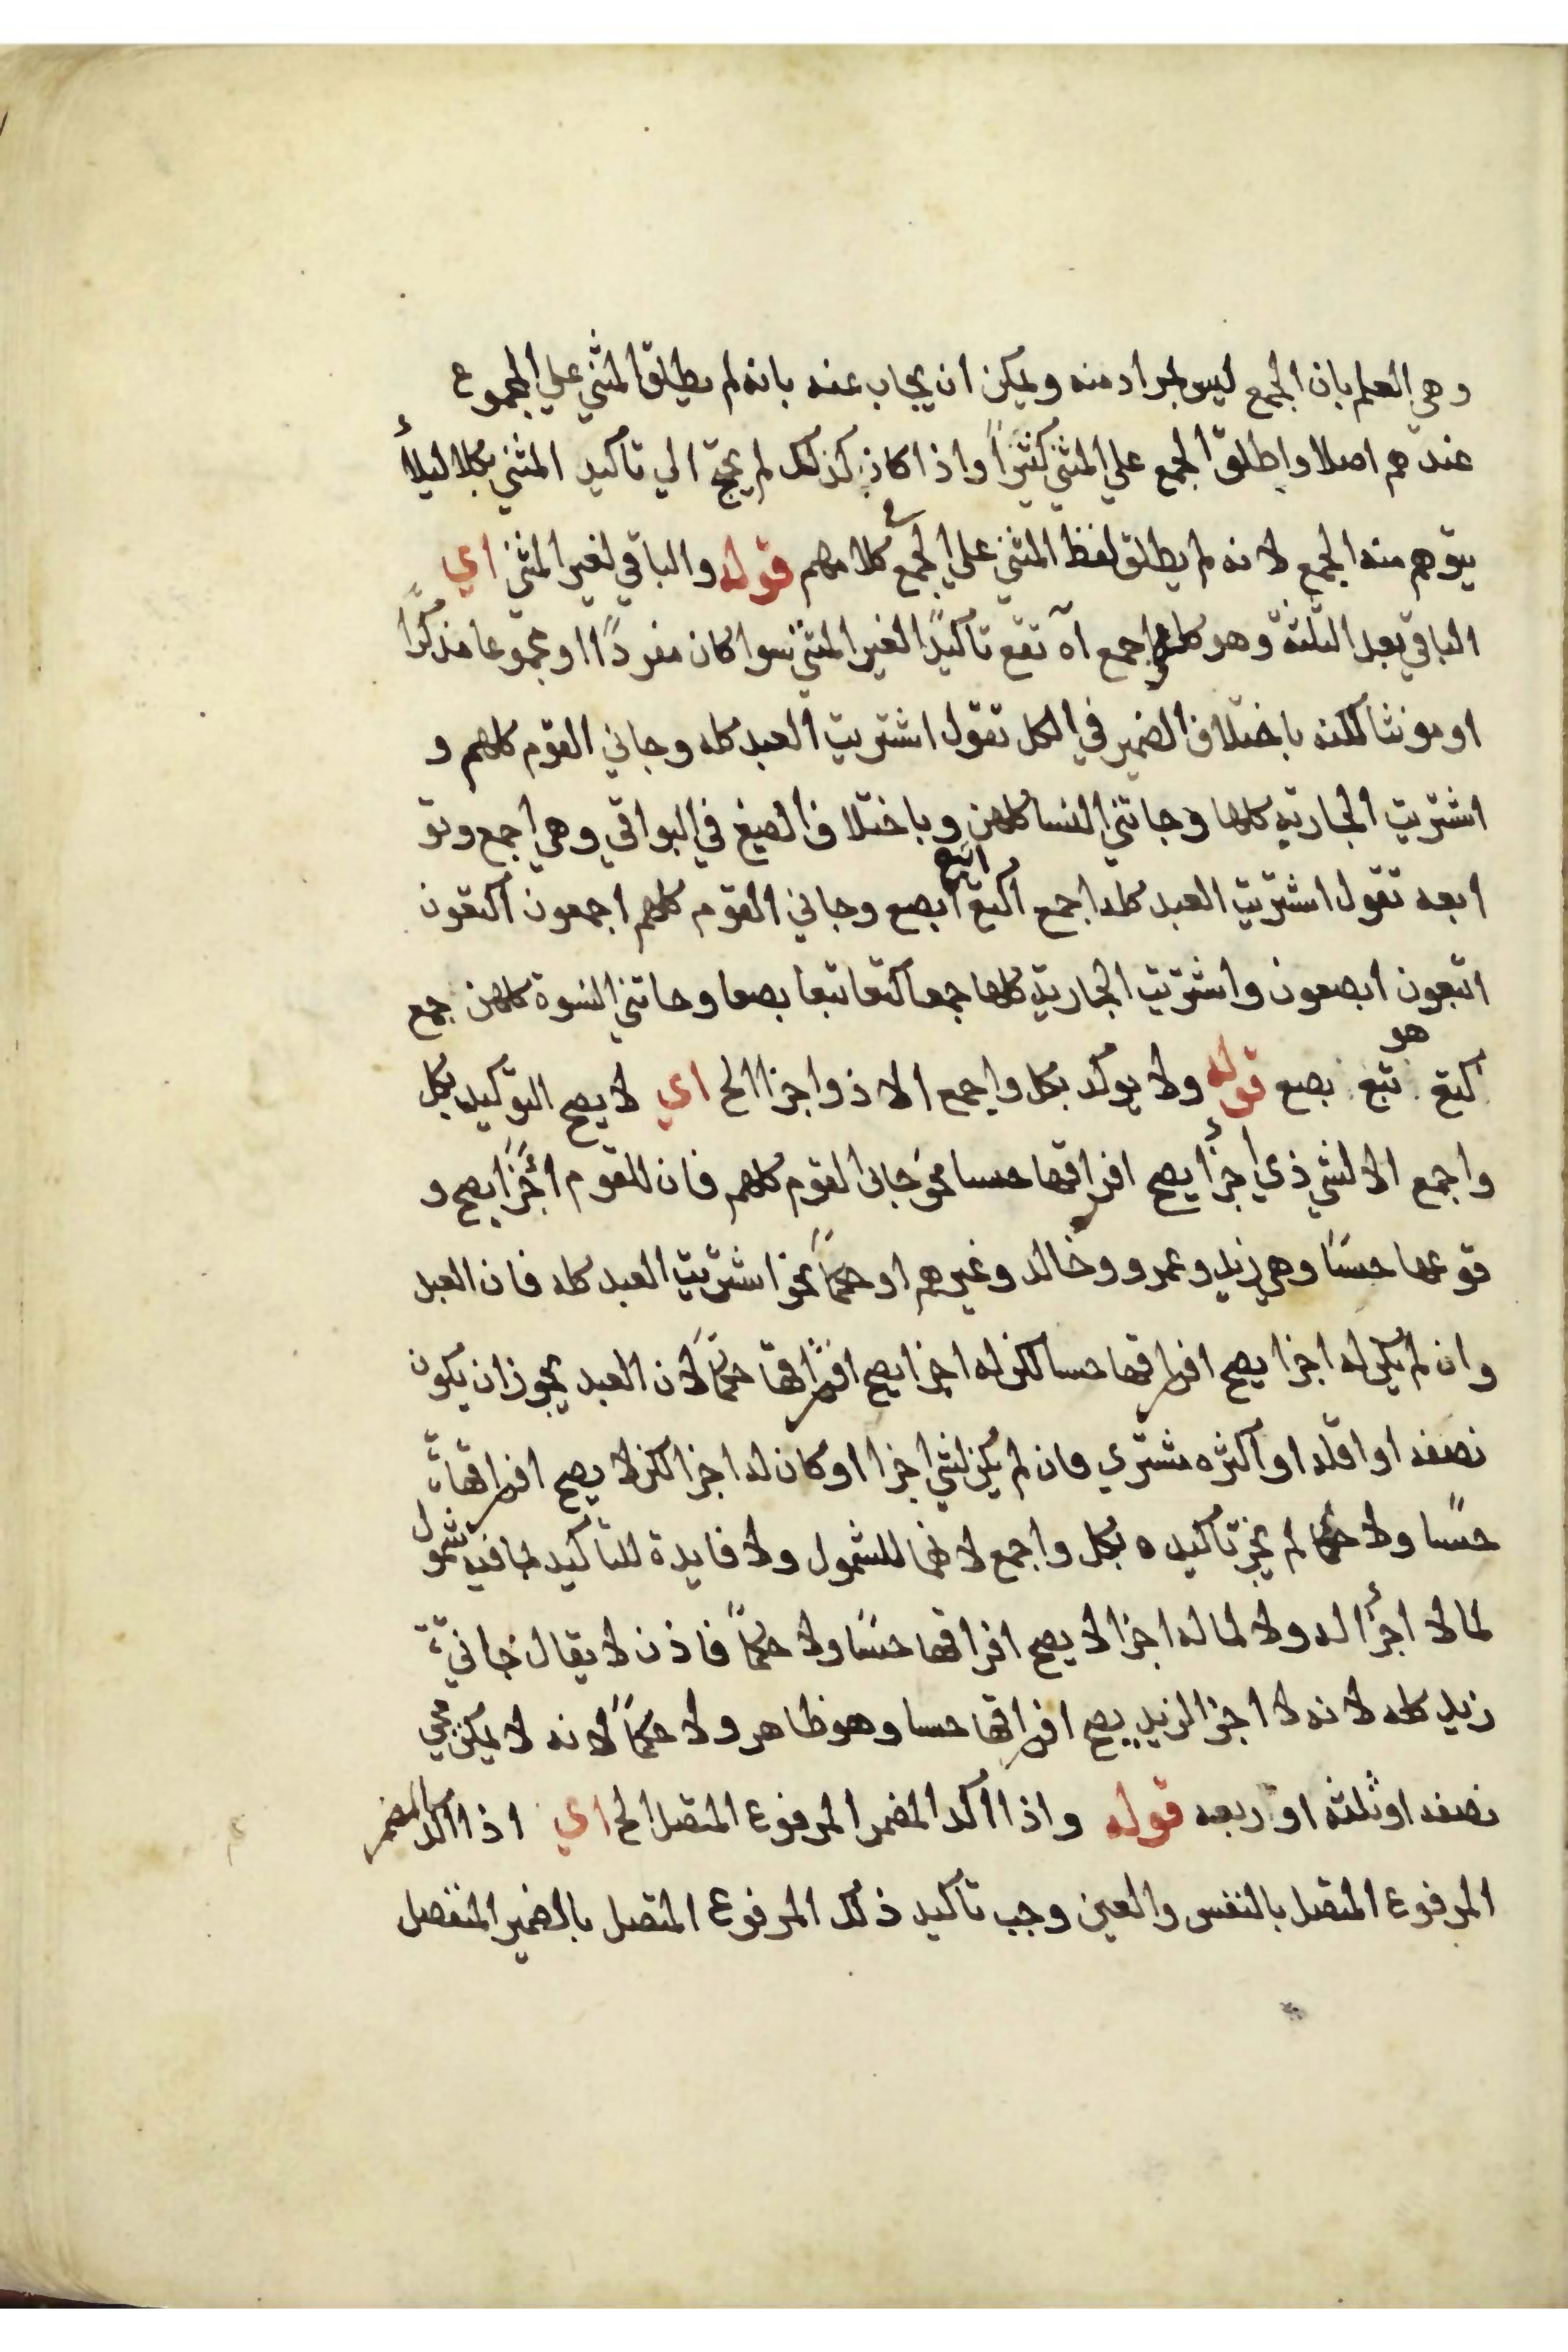 وهي العلم بان الجمع ليس بمراد منه ويمكن ان يجاب عنه بانه لم يطلق المثني علي المجموع
عندهم اصلا واطلق الجمع علي المثني كثيرًا واذا كان كذلك لم يحتج الي تاكيد المثني بكلا ليلأ
يتوهم منه الجمع لانه لم يطلق لفظ المثني علي الجمع في كلامهم قوله والباقي لغير المثني اي
الباقي بعد الثلثة وهو كله واجمع آه تقع تاكيدًا لغير المثني سوا كان مفردًا او مجموعا مذكرًا
او مونثا لكنه باختلاف الضمير في الكل تقول اشتريت العبد كله وجاني القوم كلهم و
اشتريت الجارية كلها وجاتني النسا كلهن وباختلاف الصيغ في البواقي وهي اجمع وتو
ابعه تقول اشتريت العبد كله اجمع اكتع اتبع ابصع وجاني القوم كلهم اجمعون اكتعون
اتبعون ابصعون واشتريت الجارية كلها جمعا كتعا تبعا بصعا وجاتني النسوة كلهن جمع
كتع تبع بصع هو قوله ولا يوكد بكل واجمع الا ذو اجزا الخ اي لا يصح التوكيد بكل
واجمع الا لشي ذي اجزأ يصح افراقها حسا نحو جانى القوم كلهم فان للقوم اجزأ يصح و
قوعها حسًا وهي زيد وعمرو وخالد وغيرهم او حكمًا نحو اشتريت العبد كله فان العبد
وان لم يكن له اجزا يصح افراقها حسا لكن له اجزا يصح افتراقها حكمًا لان العبد يجوز ان يكون
نصفه او اقله او اكثره مشتري فان لم يكن لشي اجزا او كان له اجزا لكن لا يصح افراقها
حسًا ولا حكما لم يجز تاكيده بكل واجمع لانهما للشمول ولا فايدة للتاكيد بما فيه شمول
لما لا اجزأ له ولا لما له اجزا لا يصح افراقها حسًا ولا حكمًا فاذن لا يقال جاني
زيد كله لانه لا اجزا لزيد يصح افراقها حسا وهو ظاهر ولا حكمًا لانه لا يمكن مجي
نصفه او ثلثه او ربعه قوله واذا اكد المضمر المرفوع المتصل الخ اي اذا اكد المضمر
المرفوع المتصل بالنفس والعين وجب تاكيد ذلك المرفوع المتصل بالضمير المنفصل